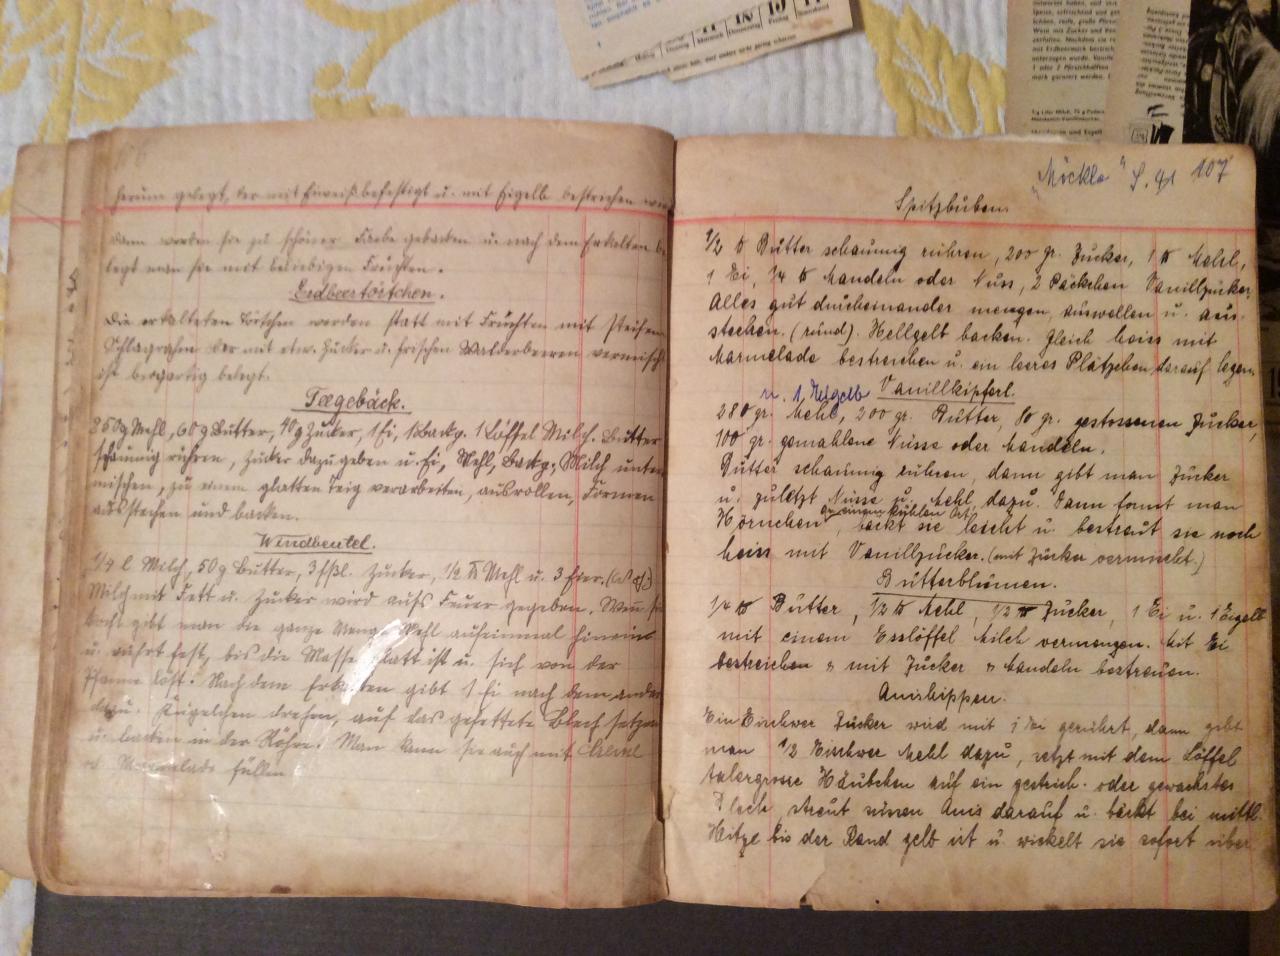 106
herum gelegt, der mit Eiweiß befestigt u. mit Eigelb bestrichen wird
dann werden sie zu schöner Farbe gebacken u. nach dem Erkalten be-
legt man sie mit beliebigen Früchten.
Erdbeertörtchen.
Die erkalteten Törtchen werden statt mit Früchten mit steifem
Schlagrahm der mit etw. Zucker u. frischen Walderdbeeren vermischt
ist bergartig belegt.
Teegebäck.
250g Mehl, 60g Butter, 40g Zucker, 1 Ei, 1 Backp. 1 Löffel Milch. Butter
schaumig rühren, Zucker dazugeben u. Ei, Mehl, Backp., Milch unter
mischen, zu einem glatten Teig verarbeiten, ausrollen, Formen
ausstechen und backen.
Windbeutel.
1/4 l Milch, 50g Butter, 3 Eßl. Zucker, 1/2 ℔ Mehl u. 3 Eier.
Milch mit Fett u. Zucker wird aufs Feuer gegeben. Wenn sie
kocht gibt man die ganze Menge Mehl aufeinmal hinein
u. rührt fest, bis die Masse glatt ist u. sich von der
Pfanne löst. Nach dem Erkalten gibt 1 Ei nach dem andern
dazu. Kügelchen drehen, auf das gefettete Blech setzen
u. backen in der Röhre. Man kann sie auch mit Creme
od Marmelade füllen
"Möckla" S. 91 107
Spitzbuben.
1/2 ℔ Butter schaumig rühren, 200 gr. Zucker, 1 ℔ Mehl,
1 Ei, 1/4 ℔ Mandeln oder Nuss, 2 Päckchen Vanillzucker,
Alles gut durcheinander mengen, auswellen u. aus-
stechen. (rund). Hellgelb backen. Gleich heiss mit
Marmelade bestreichen u. ein leeres Plätzchen darauf legen.
u. 1 Eigelb Vanillkipferl.
280 gr. Mehl, 200 gr. Butter, 80 gr. gestossenen Zucker,
100 gr. gemahlene Nüsse oder Mandeln.
Butter schaumig rühren, dann gibt man Zucker
u. zuletzt Nüsse u. Mehl dazu. Dann formt man
an einem kühlen Ort
Hörnchen, bäckt sie leicht u. bestreut sie noch
heiss mit Vanillzucker. (mit Zucker vermischt.)
Butterblumen.
1/4 ℔ Butter, 1/2 ℔ Mehl, 1/2 ℔ Zucker, 1 Ei u. 1 Eigelb
mit einem Esslöffel Milch vermengen. Mit Ei
bestreichen u mit Zucker u Mandeln bestreuen.
Anishippen.
Ein Eischwer Zucker wird mit 1 Ei gerührt, dann gibt
man 1/2 Eischwer Mehl dazu, setzt mit dem Löffel
talergrosse Häubchen auf ein gestrich. oder gewachstes
Blech, streut süssen Anis darauf u. bäckt bei mittl.
Hitze bis der Rand gelb ist u. wickelt sie sofort über